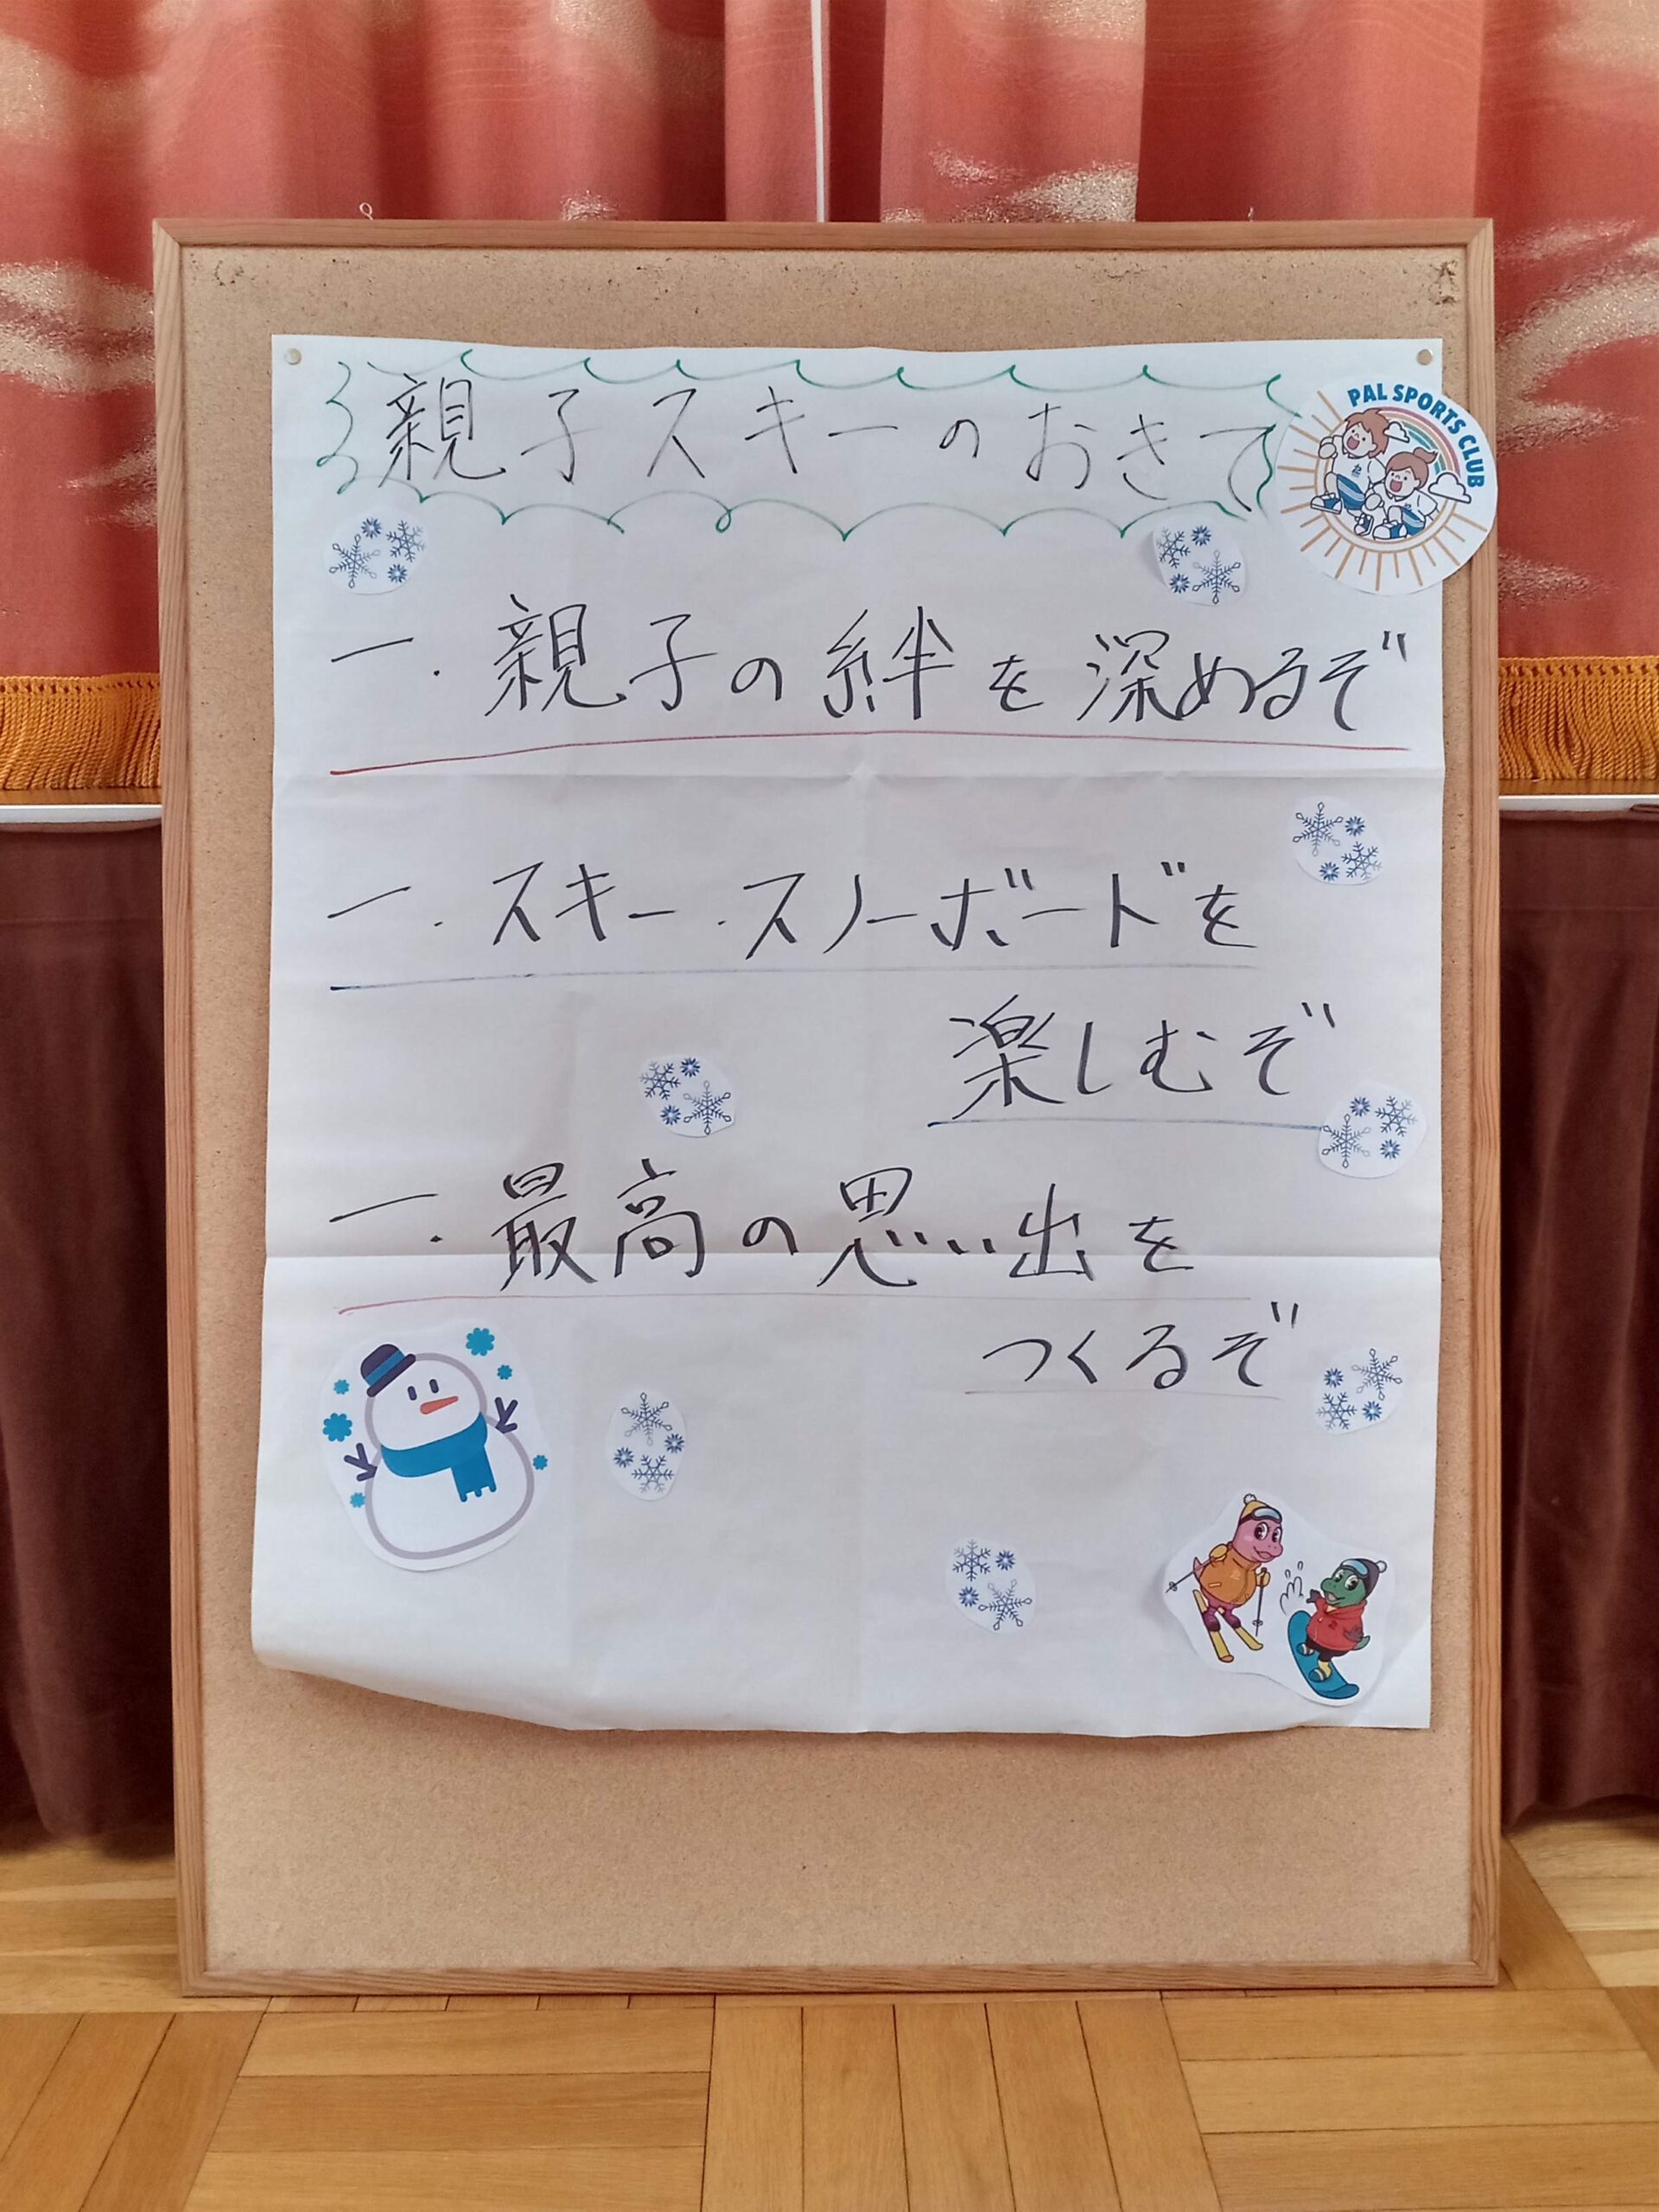 親子スキーのおきて
PAL SPORTS CLUB
一.親子の絆を深めるぞ
一.スキー・スノーボードを
楽しむぞ
一.最高の思い出を
つくるぞ